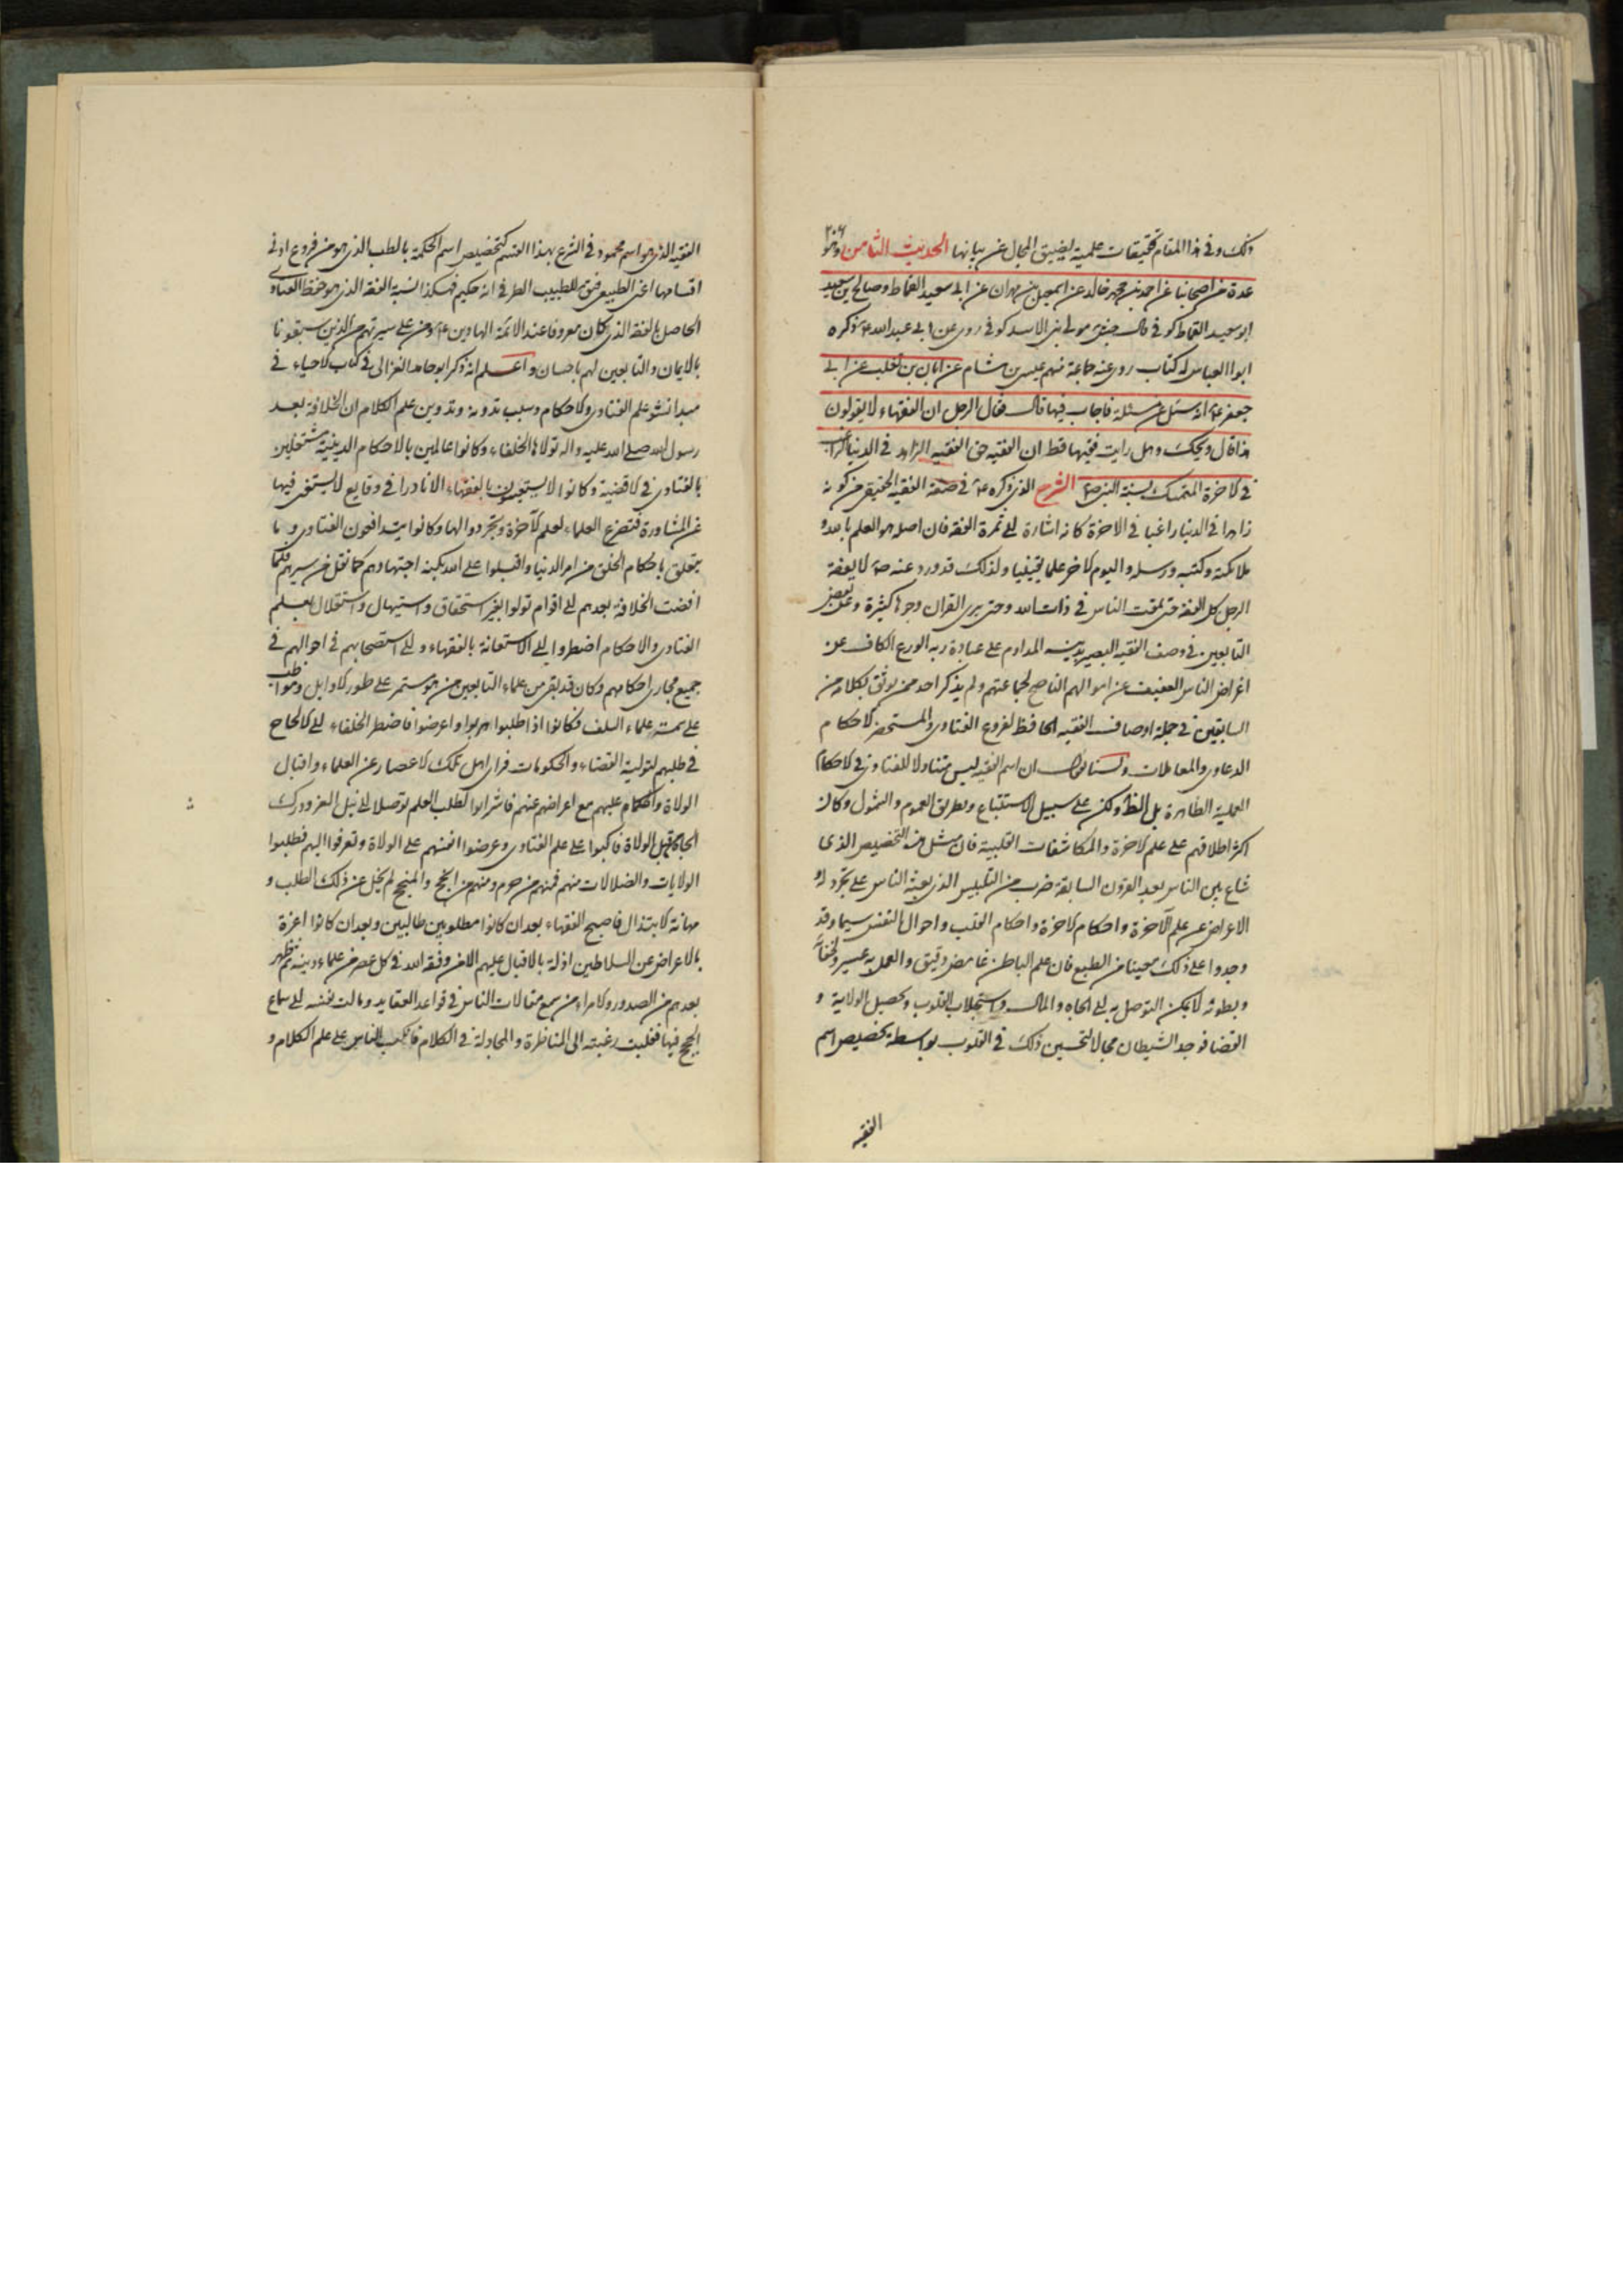 ذلك وفى هذا المقام تحقيقات علمية يضيق المجال عن بيانها الحديث الثامن وهو
٢٠٤
عدة من اصحابنا عن احمد بن محمد بن خالد عن اسمعيل بن مهران عن ابى سعيد القماط وصالح بن سعيد
ابو سعيد القماط كوفى مولى بنى الاسد كوفى روى عن ابى عبد الله ع ذكره
ابو العباس له كتاب روى عنه جماعة منهم عيسى بن هشام عن ابان بن تغلب عن ابى
جعفر ع انه سئل عن مسئلة فاجاب فيها قال فقال الرجل ان الفقهاء لا يقولون
هذا قال ويحك وهل رايت فقيها قط ان الفقيه حق الفقيه الزاهد فى الدنيا الراغب
فى الاخرة المتمسك بسنة النبى ص الشرح الذى ذكره ع فى صفة الفقيه الحقيقى من كونه
زاهدا فى الدنيا راغبا فى الاخرة كانه اشارة الى ثمرة الفقه فان اصله هو العلم بالله و
ملائكته وكتبه ورسله واليوم الاخر علما يقينيا ولذلك قد ورد عنه ص لا يفقه
الرجل كل الفقه حتى يمقت الناس فى ذات الله وحتى يرى القران وجوها كثيرة وعن بعض
التابعين فى وصف الفقيه البصير بدينه المداوم على عبادة ربه الورع الكاف عن
اعراض الناس العفيف عن اموالهم الناصح لجماعتهم ولم يذكر احد ممن يوثق بكلامه من
السابقين فى جملة اوصاف الفقيه الحافظ لفروع الفتاوى والمستحضر لاحكام
الدعاوى والمعاملات ولسنا نقول ان اسم الفقيه ليس متناولا للفتاوى فى الاحكام
العملية الظاهرة بل الظ ولكن على سبيل الاستتباع وبطريق العموم والشمول وكان
اكثر اطلاقهم على علم الاخرة والمكاشفات القلبية فان مثل هذه التخصيص الذى
شاع بين الناس بعد القرون السابقة ضرب من التلبيس الذى بعث الناس على تجرد له و
الاعراض عن علم الآخرة واحكام الاخرة واحكام القلب واحوال النفس سيما وقد
وجدوا على ذلك معينا من الطبع فان علم الباطن غامض دقيق والعمل به عسير ولخفائه
وبطونه لا يمكن التوصل به الى الجاه والمال واستجلاب القلوب وتحصيل الولاية و
القضا فوجد الشيطان مجالا لتحسين ذلك فى القلوب بواسطة تخصيص اسم
الفقيه
الفقيه الذى هو اسم محمود فى الشرع بهذا القسم كتخصيص اسم الحكمة بالطب الذى هو من فروع ادنى
اقسامها اعنى الطبيعى للطبيب الطرقى انه حكيم فهكذا نسبة الفقه الذى هو حفظ الفتاوى
الحاصل بالفقه الذى كان معروفا عند الائمة الهادين ع ومن على سيرتهم من الذين سبقونا
بالايمان والتابعين لهم باحسان واعلم انه ذكر ابو حامد الغزالى فى كتاب الاحياء فى
مبدا نشو علم الفتاوى والاحكام وسبب تدوينه وتدوين علم الكلام ان الخلافة بعد
رسول الله صلى الله عليه واله تولاها الخلفاء وكانوا عالمين بالاحكام الدينية مشتغلين
بالفتاوى فى الاقضية وكانوا لا يستعينون بالفقهاء الا نادرا فى وقايع لا يستغنى فيها
عن المشاورة فتفرغ العلماء لعلم الآخرة وتجردوا لها وكانوا يتدافعون الفتاوى وما
يتعلق باحكام الخلق من امر الدنيا واقبلوا على الله بكنه اجتهادهم كما نقل من سيرهم فلما
افضت الخلافة بعدهم الى اقوام تولوا بغير استحقاق واستيهال واستقلال بعلم
الفتاوى والاحكام اضطروا الى الاستعانة بالفقهاء والى استصحابهم فى احوالهم فى
جميع مجارى احكامهم وكان قد بقى من علماء التابعين من هو مستمر على طور الاوايل ومواظب
على سمت علماء السلف فكانوا اذا طلبوا هربوا واعرضوا فاضطر الخلفاء الى الالحاح
فى طلبهم لتولية القضاء والحكومات فراى اهل تلك الاعصار عن العلماء واقبال
الولاة والحكام عليهم مع اعراضهم عنهم فاشرابوا لطلب العلم توصلا الى نيل العز ودرك
الجاه من قبل الولاة فاكبوا على علم الفتاوى وعرضوا انفسهم على الولاة وتعرفوا اليهم فطلبوا
الولايات والصلات منهم فمنهم من حرم ومنهم من انجح والمنجح لم يخل عن ذلك الطلب و
مهانة الابتذال فاصبح الفقهاء بعد ان كانوا مطلوبين طالبين وبعد ان كانوا اعزة
بالاعراض عن السلاطين اذلة بالاقبال عليهم الا من وفقه الله فى كل عصر من علماء دينه ثم ظهر
بعدهم من الصدور والامراء من سمع مقالات الناس فى قواعد العقايد ومالت نفسه الى سماع
الحجج فيها فغلبت رغبته الى المناظرة والمجادلة فى الكلام فاكب الناس على علم الكلام و